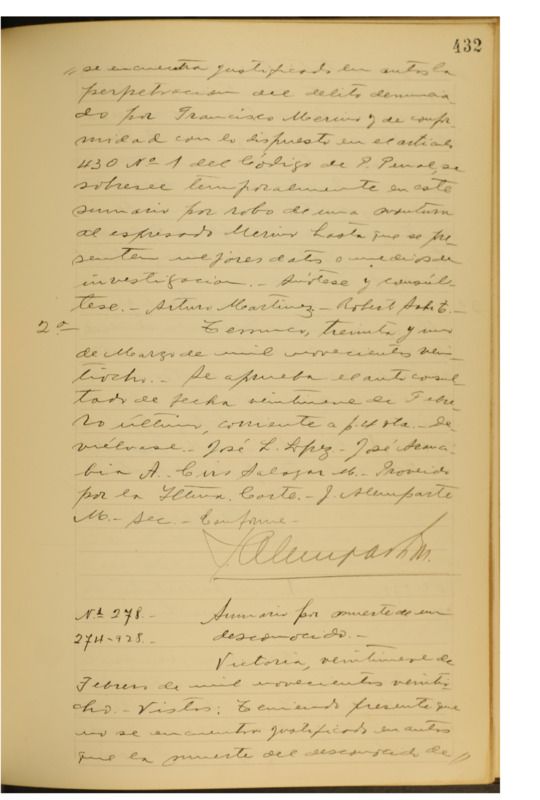 432
" se encuentra justificado en autos la
perpetracion del delito denuncia-
do por Francisco Merino y de confor-
midad con lo dispuesto en el articulo
430 Nº 1 del Código de P. Penal, se
sobresee temporalmente en este
sumario por robo de una montura
al espresado Merino hasta que se pre-
senten mejores datos o medios de
investigacion.- Anótese y consúl-
tese.- Arturo Martinez- Robert
2ª Temuco, treinta y uno
de Marzo de mil novecientos vein-
tiocho.- Se aprueba el auto consul-
tado de fecha veintinueve de Febre-
ro último, corriente a f. 4 vta.- De-
vuélvase.- José L. Lopez.- José Aravi-
bia A.- Ciro Salazar M.- Proveido
por la Iltma. Corte.- J. Alemparte
M.- Sec.- Conforme.-
J Alemparte M.
N.º 278.- Sumario por muerte de un
274-928.- desconocido.-
Victoria, veintinueve de
Febrero de mil novecientos veintio-
cho.- Vistos: Teniendo presente que
no se encuentra justificado en autos
que la muerte del desconocido de "